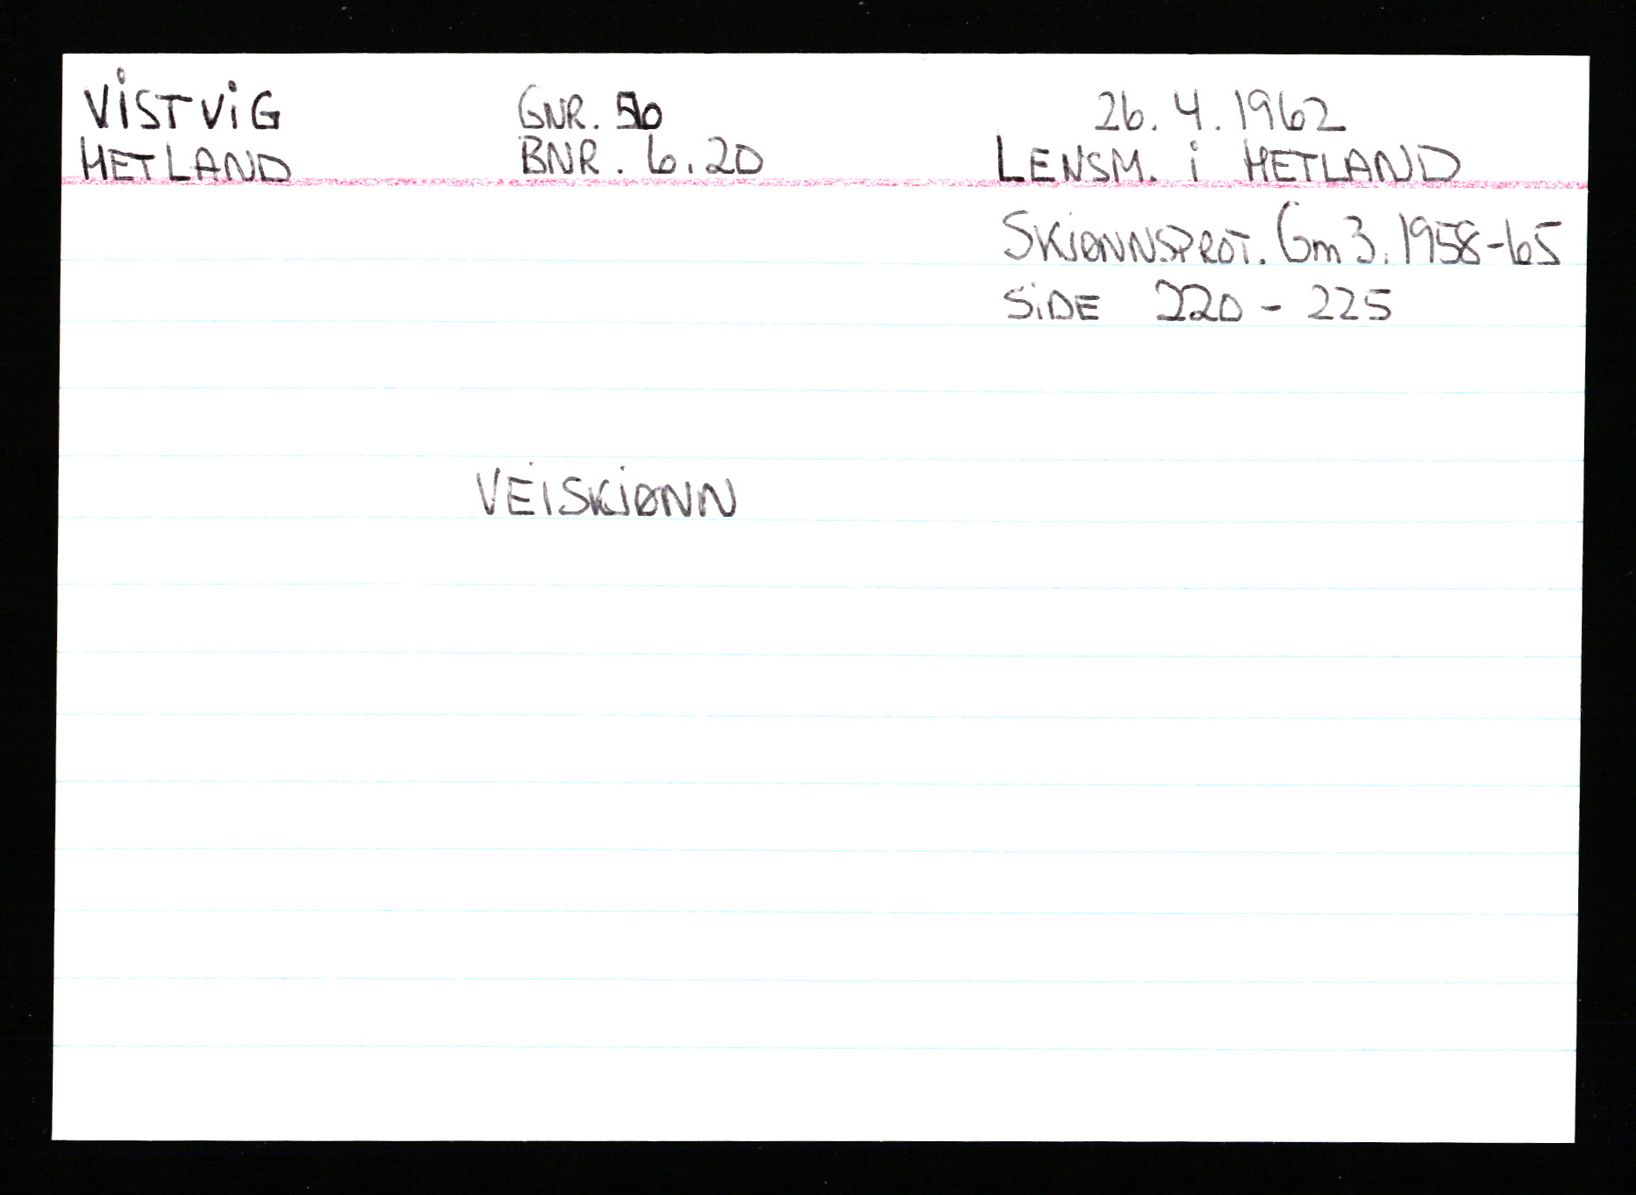 VISTVIG GNR. 56 26. 4. 1962
HETLAND BNR. 6.20 LENSM. i HETLAND
SKJØNNSPROT. Gm 3. 1958-65
SIDE 220 - 225
VEISKJØNN